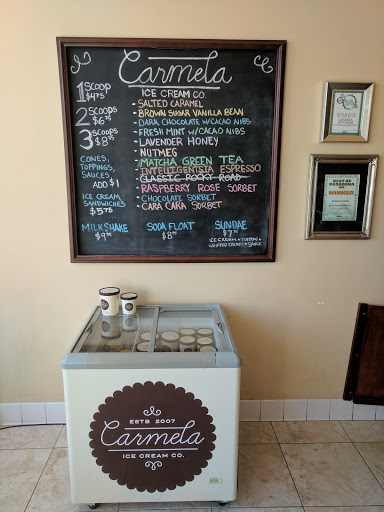 Carmela
ICE CREAM CO.
1 SCOOP $4.75
2 SCOOPS $6.75
3 SCOOPS $8.75
CONES,
TOPPINGS,
SAUCES,
ADD $1
ICE CREAM
SANDWICHES
$5.75
- SALTED CARAMEL
- BROWN SUGAR VANILLA BEAN
- DARK CHOCOLATE W/CACAO NIBS
- FRESH MINT W/CACAO NIBS
- LAVENDER HONEY
- NUTMEG
- MATCHA GREEN TEA
- INTELLIGENTSIA ESPRESSO
- CLASSIC ROCKY ROAD
- RASPBERRY ROSE SORBET
- CHOCOLATE SORBET
- CARA CARA SORBET
MILKSHAKE
$9.75
SODA FLOAT
$8.75
SUNDAE
$7.75
ICE CREAM + TOPPING +
WHIPPED CREAM + SAUCE
BEST OF
PASADENA
WINNER
ESTB 2007
Carmela
ICE CREAM CO.